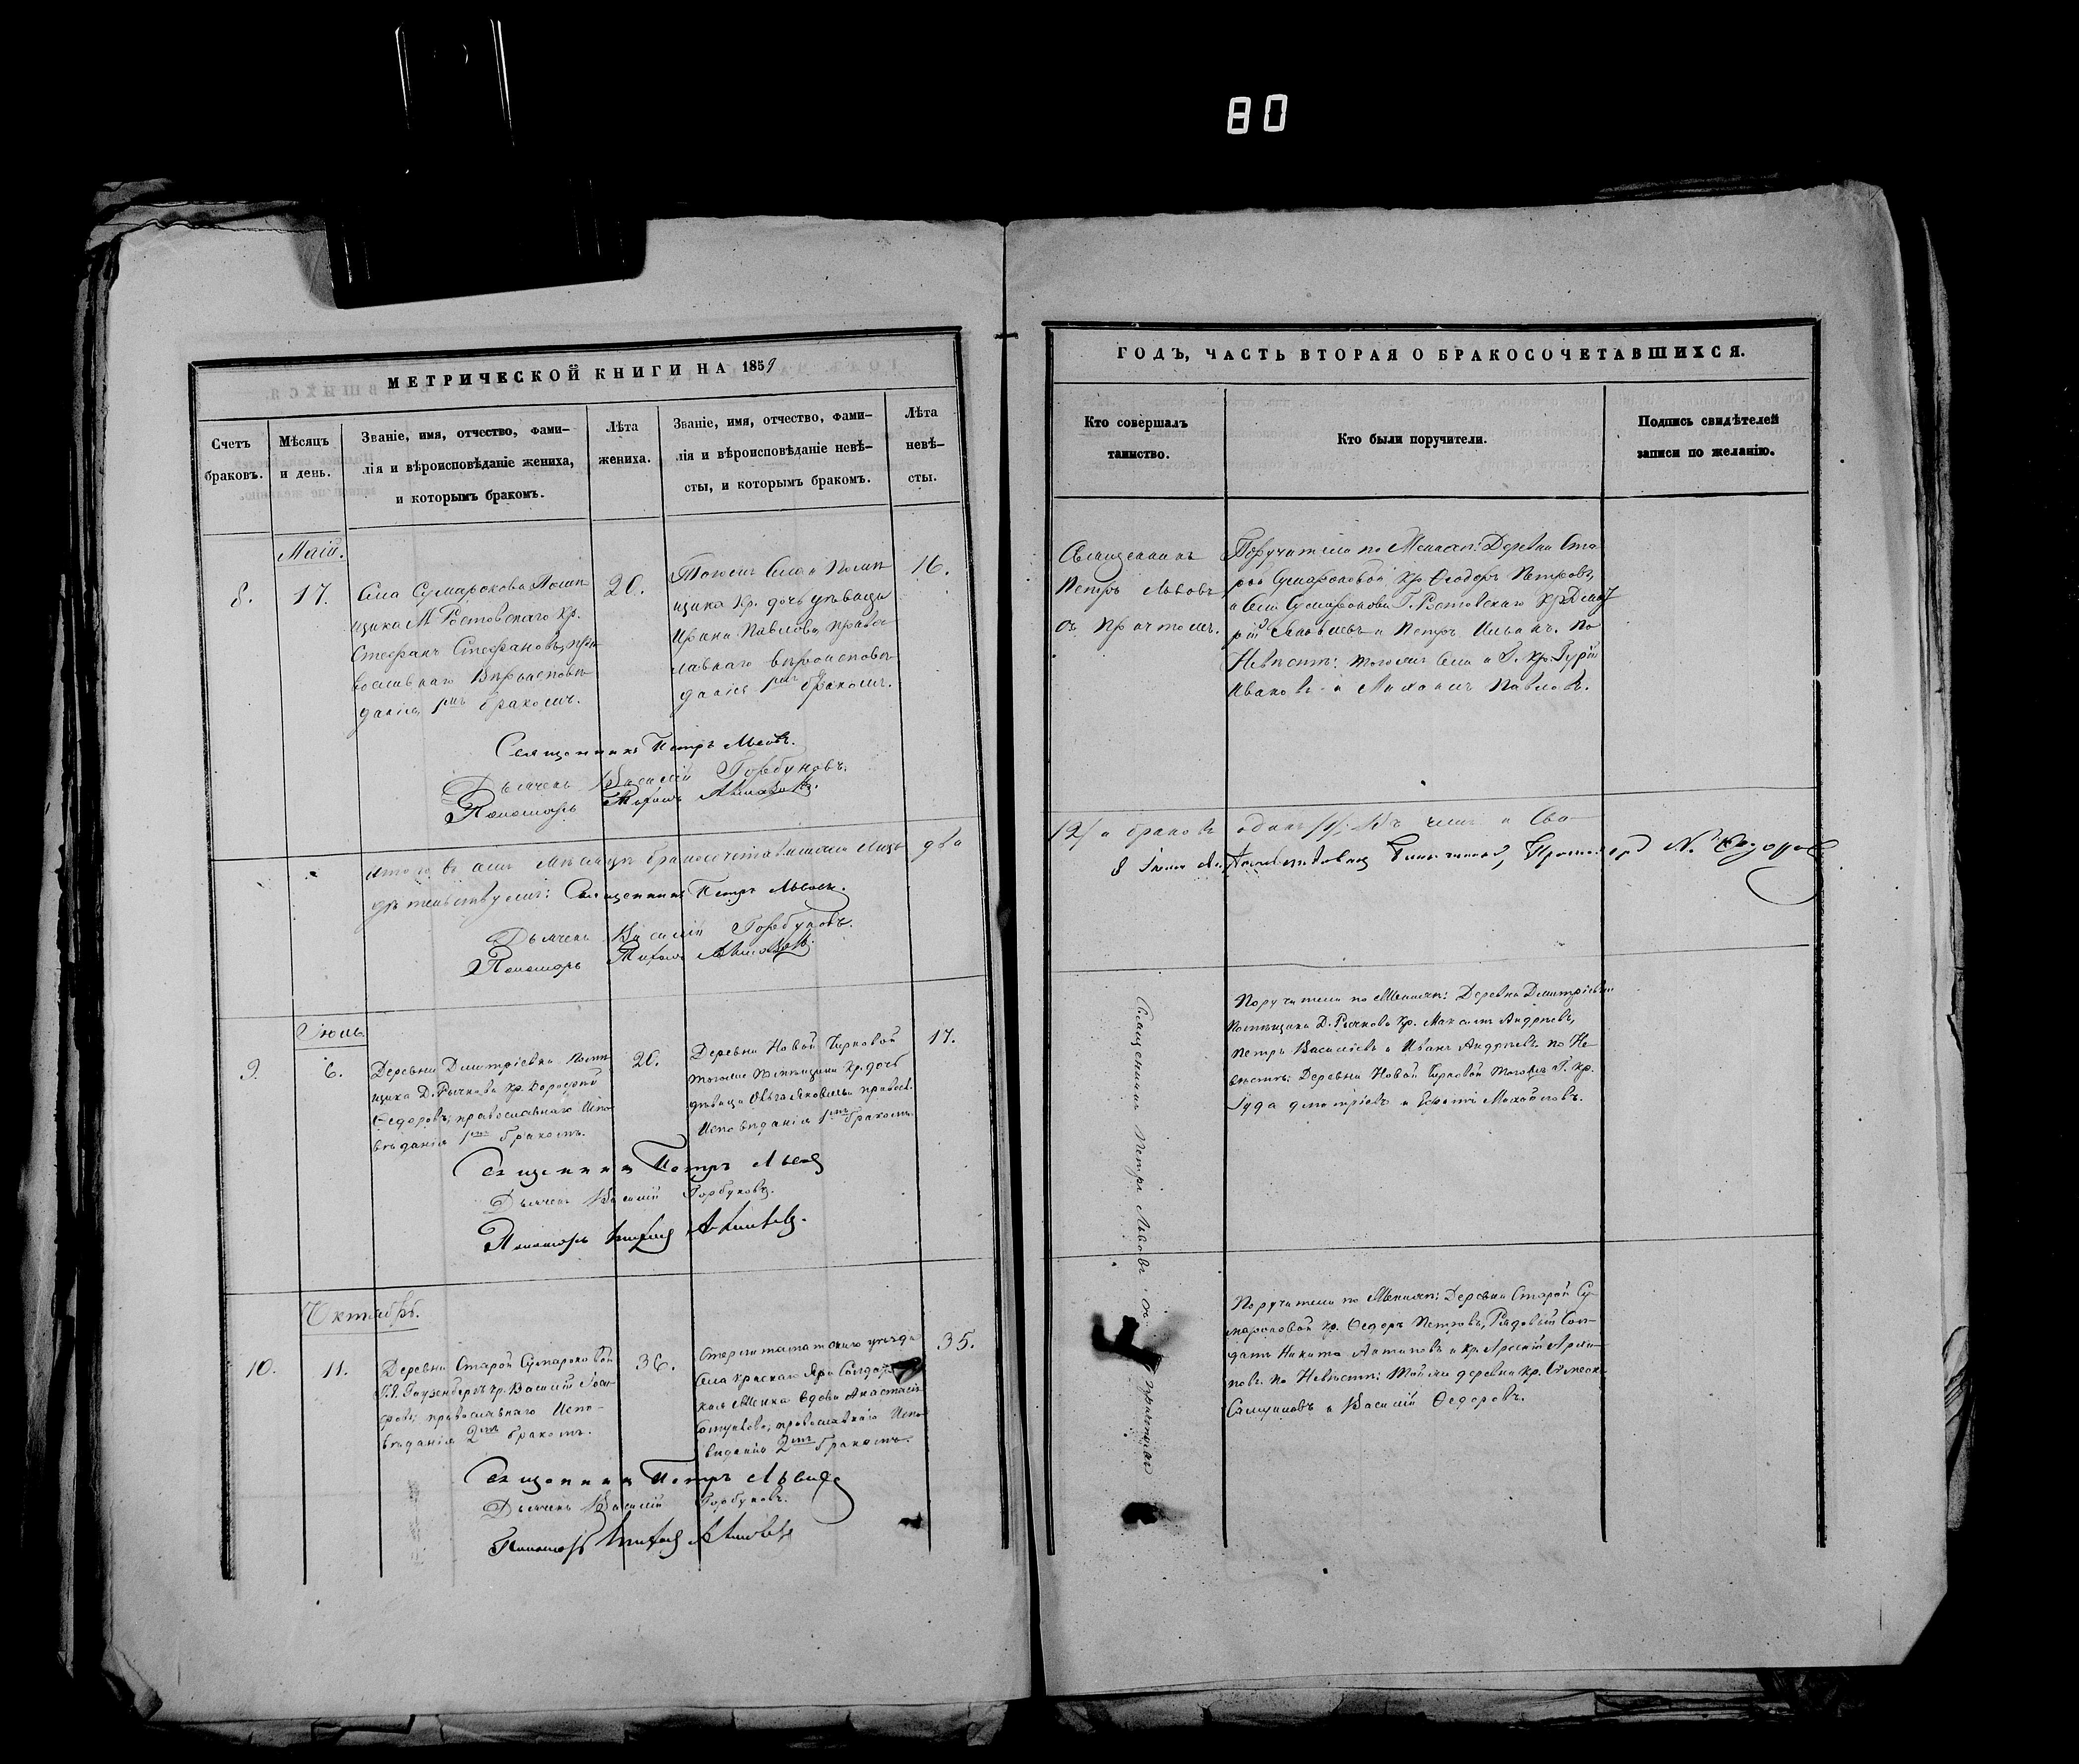 80
МЕТРИЧЕСКОЙ КНИГИ НА 1859
Счетъ
браковъ.
Мѣсяцъ
и день.
Званіе, имя, отчество, фами-
лія и вѣроисповѣданіе жениха,
и которымъ бракомъ.
Лѣта
жениха.
Званіе, имя, отчество, фами-
лія и вѣроисповѣданіе невѣ-
сты, и которымъ бракомъ.
Лѣта
невѣ-
сты.
Маій.
8.
17.
Села Сумарокова Помѣ-
щика М. Ростовскаго Кр.
Стефанъ Стефановъ, пра-
вославнаго Вѣроисповѣ-
данія, 1мъ бракомъ.
20.
Тогоже Села и Помѣ-
щика Кр. дочь дѣвица
Ирина Павлова, Право-
славнаго вѣроисповѣ-
данія 1мъ бракомъ.
16.
Священникъ Петръ Львовъ.
Дьячекъ Василій Горбуновъ.
Пономарь
Итого въ маѣ мѣсяцѣ бракосочетавшихся лицъ два
Священникъ Петръ Львовъ.
Дьячекъ Василій Горбуновъ.
Пономарь
Іюль
9.
6.
Деревни Димитріевки Помѣ-
щика Д. Рычкова Кр.
Ѳедоровъ, православнаго Испо-
вѣданія 1мъ бракомъ.
20.
Деревни Новой
тогоже Помѣщика Кр. дочь
дѣвица Яковлева правосл.
Исповѣданія 1мъ бракомъ.
17.
Священникъ Петръ Львовъ
Дьячекъ Василій Горбуновъ.
Пономарь
Октябрь.
10.
11.
Деревни Старой Сумароковой
кр. Василій
православнаго Испо-
вѣданія 2мъ бракомъ.
36.
Стерлитаматскаго уѣзда
Села Краснаго Яра Солдат-
ская Жена вдова Анастасія
православнаго Испо-
вѣданія 2мъ бракомъ.
35.
Священникъ Петръ Львовъ
Дьячекъ Василій Горбуновъ.
Пономарь
ГОДЪ, ЧАСТЬ ВТОРАЯ О БРАКОСОЧЕТАВШИХСЯ.
Кто совершалъ
таинство.
Кто были поручители.
Подпись свидѣтелей
записи по желанію.
Священникъ
Петръ Львовъ
съ Причтомъ.
Поручители по Женихѣ: Деревни Ста-
рой Сумароковой Кр. Ѳеодоръ Петровъ,
и Села Сумарокова Г. Ростовскаго Кр. Дмит-
рій Яковлевъ и Петръ По
Невѣстѣ: тогоже Села и Г. Кр. Гурій
Ивановъ и Михаилъ Павловъ.
/2/ а браковъ одинъ /1/. Въ чемъ и Сви-
8 Іюля
Священникъ Петръ Львовъ съ Причтомъ
Поручители по Женихѣ: Деревни Димитріевки
Помѣщика Д. Рычкова Кр. Максимъ Андреевъ,
Петръ Василіевъ и Иванъ Андреевъ. по Не-
вѣстѣ: Деревни Новой тогоже Г. Кр.
Іуда Дмитріевъ и Михайловъ.
Поручители по Женихѣ: Деревни Старой Су-
мароковой Кр. Ѳедоръ Петровъ, Рядовый Сол-
датъ Никита Антиповъ и Кр.
по Невѣстѣ: Тойже деревни Кр.
и Василій Ѳедоровъ.